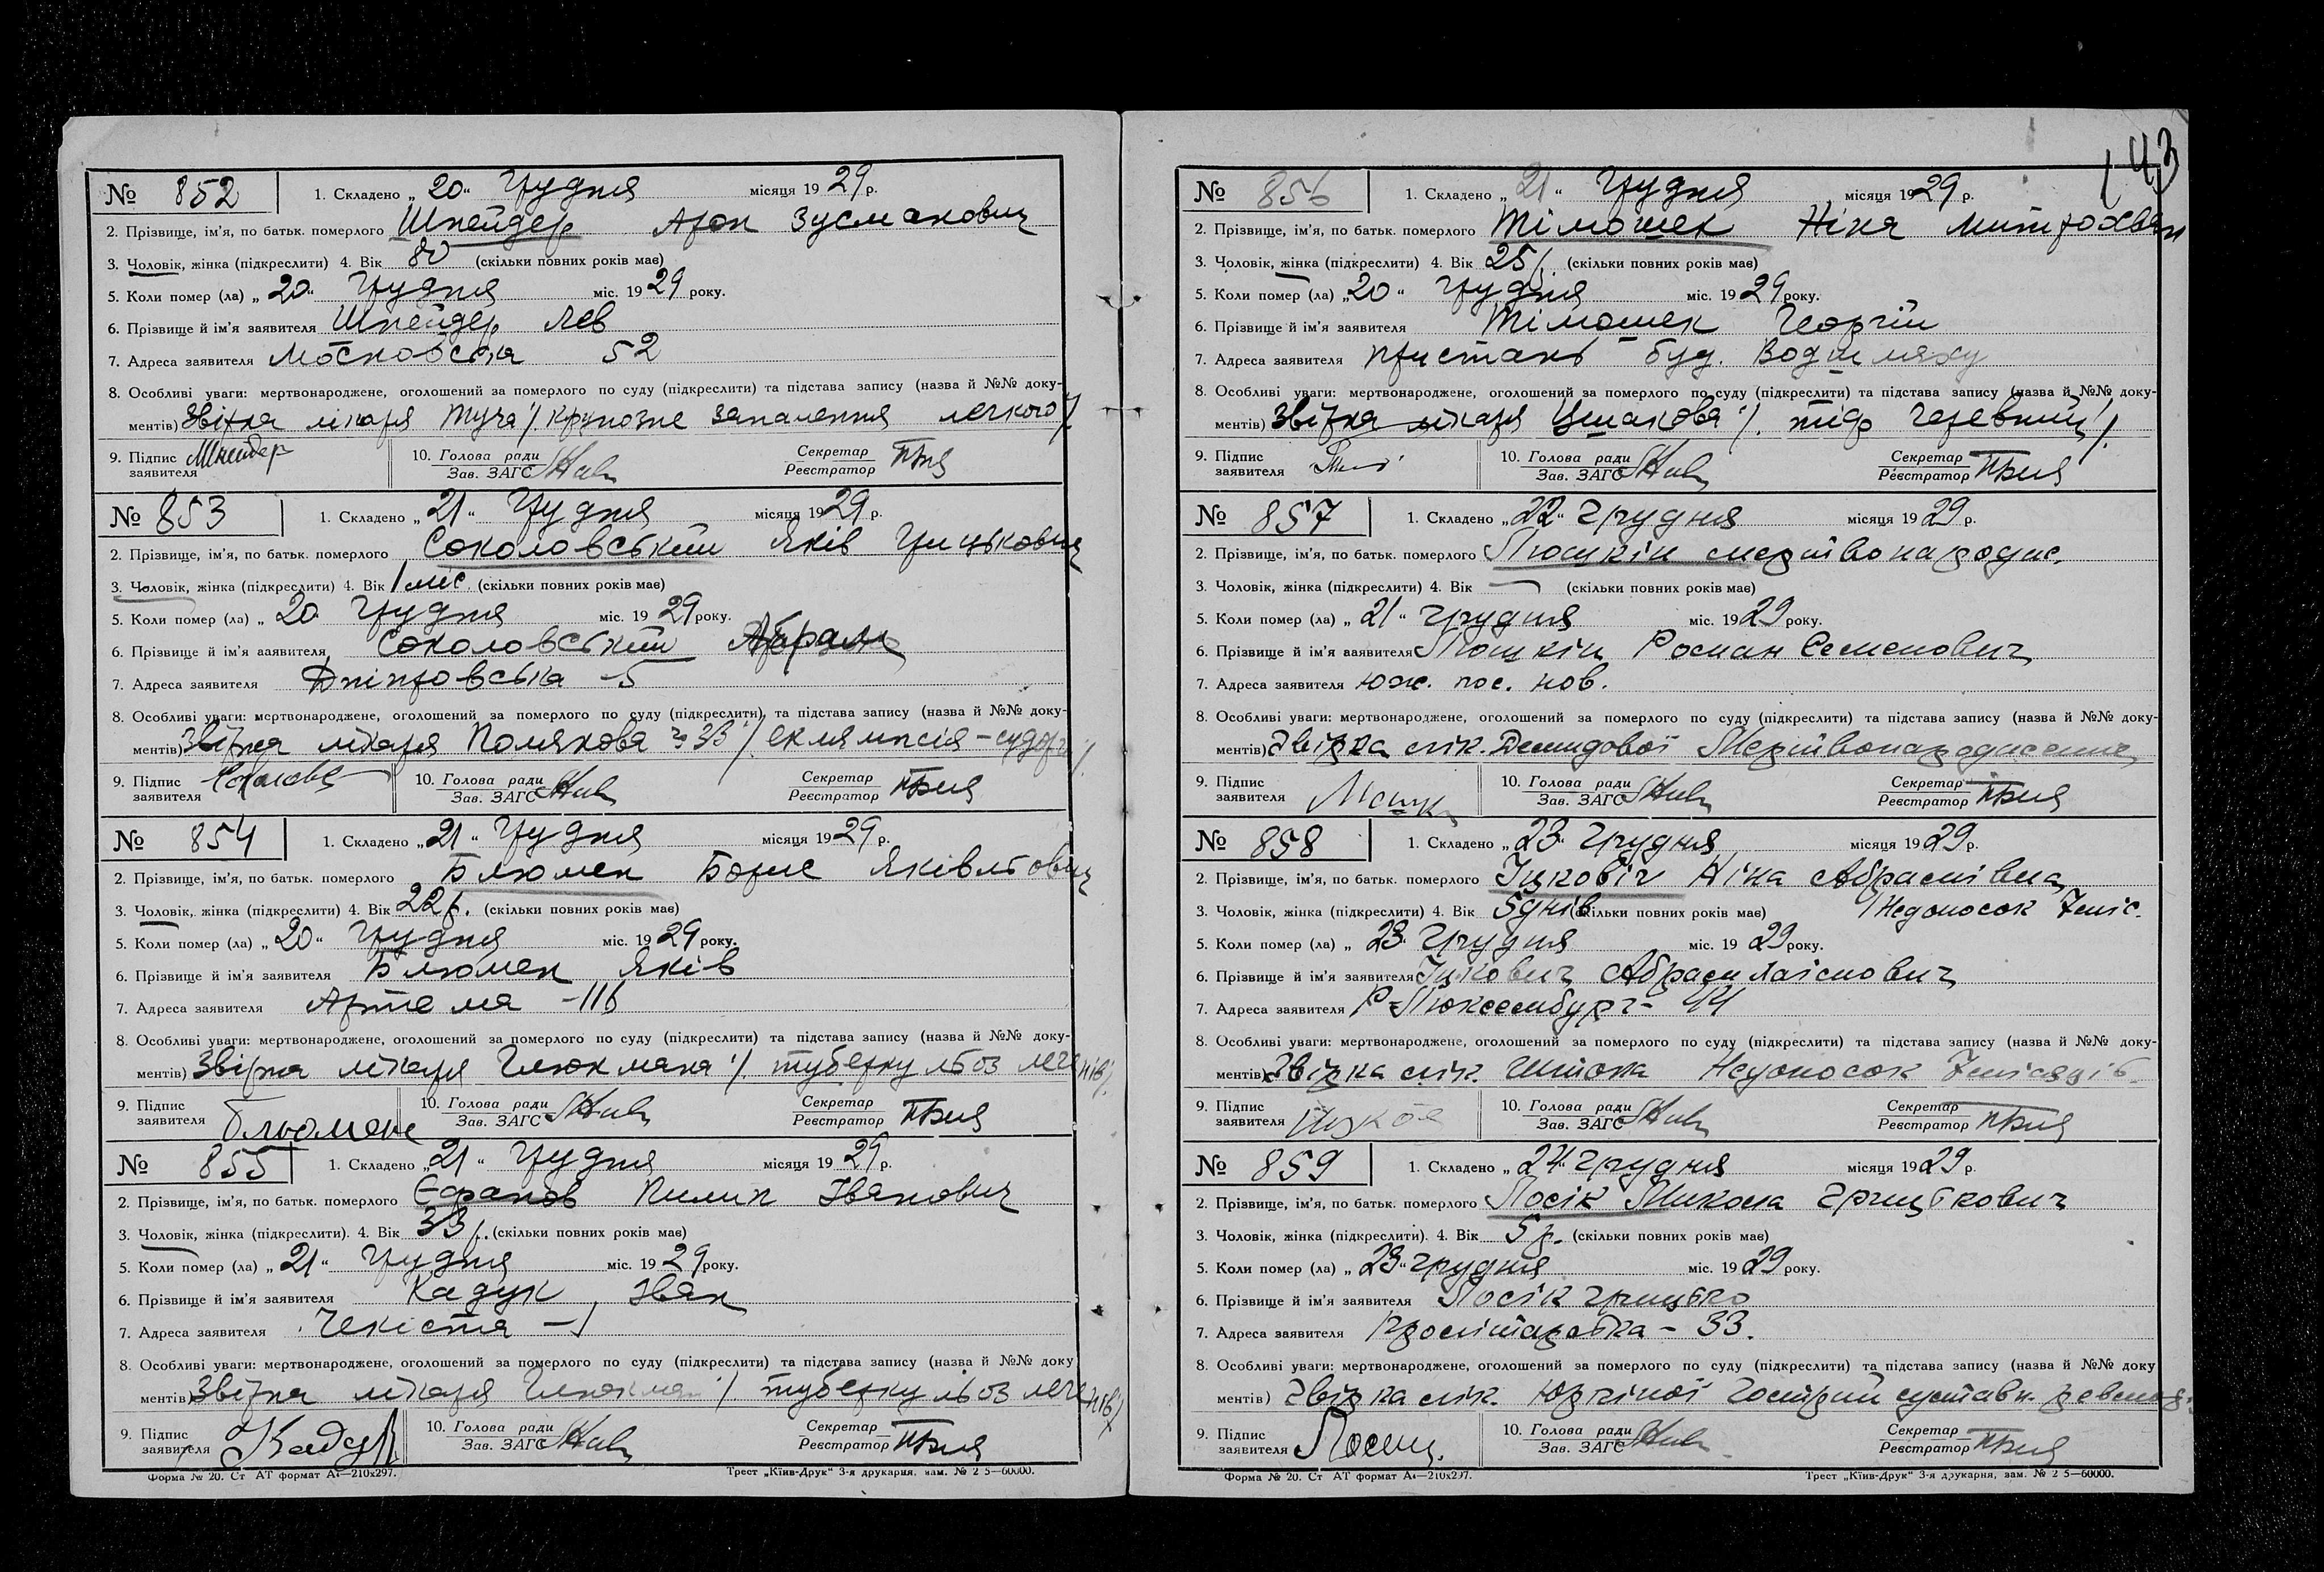 143
№ 852 1. Складено „20“ Грудня місяця 1929 р.
2. Прізвище, ім'я, по батьк. померлого Шнейдер Арон Зусманович
3. Чоловік, жінка (підкреслити) 4. Вік 80 (скільки повних років має)
5. Коли помер (ла) „20“ Грудня міс. 1929 року.
6. Прізвище й ім'я заявителя Шнейдер Лев
7. Адреса заявителя Московська 52
8. Особливі уваги: мертвонароджене, оголошений за померлого по суду (підкреслити) та підстава запису (назва й №№ доку-
ментів) Звірка лікаря Туча /. крупозне запалення легкого /.
9. Підпис заявителя Шнейдер 10. Голова ради Зав. ЗАГС Секретар Реєстратор
№ 853 1. Складено „21“ Грудня місяця 1929 р.
2. Прізвище, ім'я, по батьк. померлого Соколовський Яків Грицькович
3. Чоловік, жінка (підкреслити) 4. Вік 1 міс (скільки повних років має)
5. Коли помер (ла) „20 Грудня міс. 1929 року.
6. Прізвище й ім'я заявителя Соколовський Абрам
7. Адреса заявителя Дніпровська -5
8. Особливі уваги: мертвонароджене, оголошений за померлого по суду (підкреслити) та підстава запису (назва й №№ доку-
ментів) Звірка лікаря Полякова 33 /. еклямпсія - судорги /.
9. Підпис заявителя 10. Голова ради Зав. ЗАГС Секретар Реєстратор
№ 854 1. Складено „21“ Грудня місяця 1929 р.
2. Прізвище, ім'я, по батьк. померлого Блюмен Борис Яківльович
3. Чоловік, жінка (підкреслити) 4. Вік 22 р. (скільки повних років має)
5. Коли помер (ла) „20“ Грудня міс. 1929 року.
6. Прізвище й ім'я заявителя Блюмен Яків
7. Адреса заявителя Артема -116
8. Особливі уваги: мертвонароджене, оголошений за померлого по суду (підкреслити) та підстава запису (назва й №№ доку-
ментів) Звірка лікаря Глюкмана /. туберкульоз легенів /.
9. Підпис заявителя Блюмен 10. Голова ради Зав. ЗАГС Секретар Реєстратор
№ 855 1. Складено „21“ Грудня місяця 1929 р.
2. Прізвище, ім'я, по батьк. померлого Єфанов Пилип Іванович
3. Чоловік, жінка (підкреслити). 4. Вік 33 р. (скільки повних років має)
5. Коли помер (ла) „21“ Грудня міс. 1929 року.
6. Прізвище й ім'я заявителя Кадук Іван
7. Адреса заявителя Чекіста -1
8. Особливі уваги: мертвонароджене, оголошений за померлого по суду (підкреслити) та підстава запису (назва й №№ доку
ментів) Звірка лікаря Глюкмана /. туберкульоз легенів /.
9. Підпис заявителя Кадук 10. Голова ради Зав. ЗАГС Секретар Реєстратор
Форма № 20. Ст АТ формат А4—210х297. Трест „Київ-Друк“ 3-я друкарня, зам. № 2 5—60000.
№ 856 1. Складено „21“ Грудня місяця 1929 р.
2. Прізвище, ім'я, по батьк. померлого Тімошек Ніна
3. Чоловік, жінка (підкреслити) 4. Вік 25 р. (скільки повних років має)
5. Коли помер (ла) „20“ Грудня міс. 1929 року.
6. Прізвище й ім'я заявителя Тімошек Георгій
7. Адреса заявителя Пристань буд. Водшляху
8. Особливі уваги: мертвонароджене, оголошений за померлого по суду (підкреслити) та підстава запису (назва й №№ доку-
ментів) Звірка лікаря Ушакова /. тиф черевний /.
9. Підпис заявителя 10. Голова ради Зав. ЗАГС Секретар Реєстратор
№ 857 1. Складено „22“ Грудня місяця 1929 р.
2. Прізвище, ім'я, по батьк. померлого мертвонародже.
3. Чоловік, жінка (підкреслити) 4. Вік — (скільки повних років має)
5. Коли помер (ла) „21“ Грудня міс. 1929 року.
6. Прізвище й ім'я заявителя Роман Семенович
7. Адреса заявителя Юж. пос. нов.
8. Особливі уваги: мертвонароджене, оголошений за померлого по суду (підкреслити) та підстава запису (назва й №№ доку-
ментів) Звірка лік. Демидової Мертвонародження
9. Підпис заявителя 10. Голова ради Зав. ЗАГС Секретар Реєстратор
№ 858 1. Складено „23“ Грудня місяця 1929 р.
2. Прізвище, ім'я, по батьк. померлого Іцковіч Ніна Абрамівна
3. Чоловік, жінка (підкреслити) 4. Вік 5 днів (скільки повних років має) Недоносок 7 міс.
5. Коли помер (ла) „23 Грудня міс. 1929 року.
6. Прізвище й ім'я заявителя Іцкович Абрам
7. Адреса заявителя Р-Люксембург - 44
8. Особливі уваги: мертвонароджене, оголошений за померлого по суду (підкреслити) та підстава запису (назва й №№ доку-
ментів) Звірка лік. Недоносок 7 місяців
9. Підпис заявителя 10. Голова ради Зав. ЗАГС Секретар Реєстратор
№ 859 1. Складено „24“ Грудня місяця 1929 р.
2. Прізвище, ім'я, по батьк. померлого Лосік Микола Грицькович
3. Чоловік, жінка (підкреслити). 4. Вік 5 р. (скільки повних років має)
5. Коли помер (ла) „23“ Грудня міс. 1929 року.
6. Прізвище й ім'я заявителя Лосік Грицько
7. Адреса заявителя Пролітарська - 33.
8. Особливі уваги: мертвонароджене, оголошений за померлого по суду (підкреслити) та підстава запису (назва й №№ доку
ментів) Звірка лік. Юркіної Гострий суставн. ревмат.
9. Підпис заявителя 10. Голова ради Зав. ЗАГС Секретар Реєстратор
Форма № 20. Ст АТ формат А4—210х297. Трест „Київ-Друк“ 3-я друкарня, зам. № 2 5—60000.